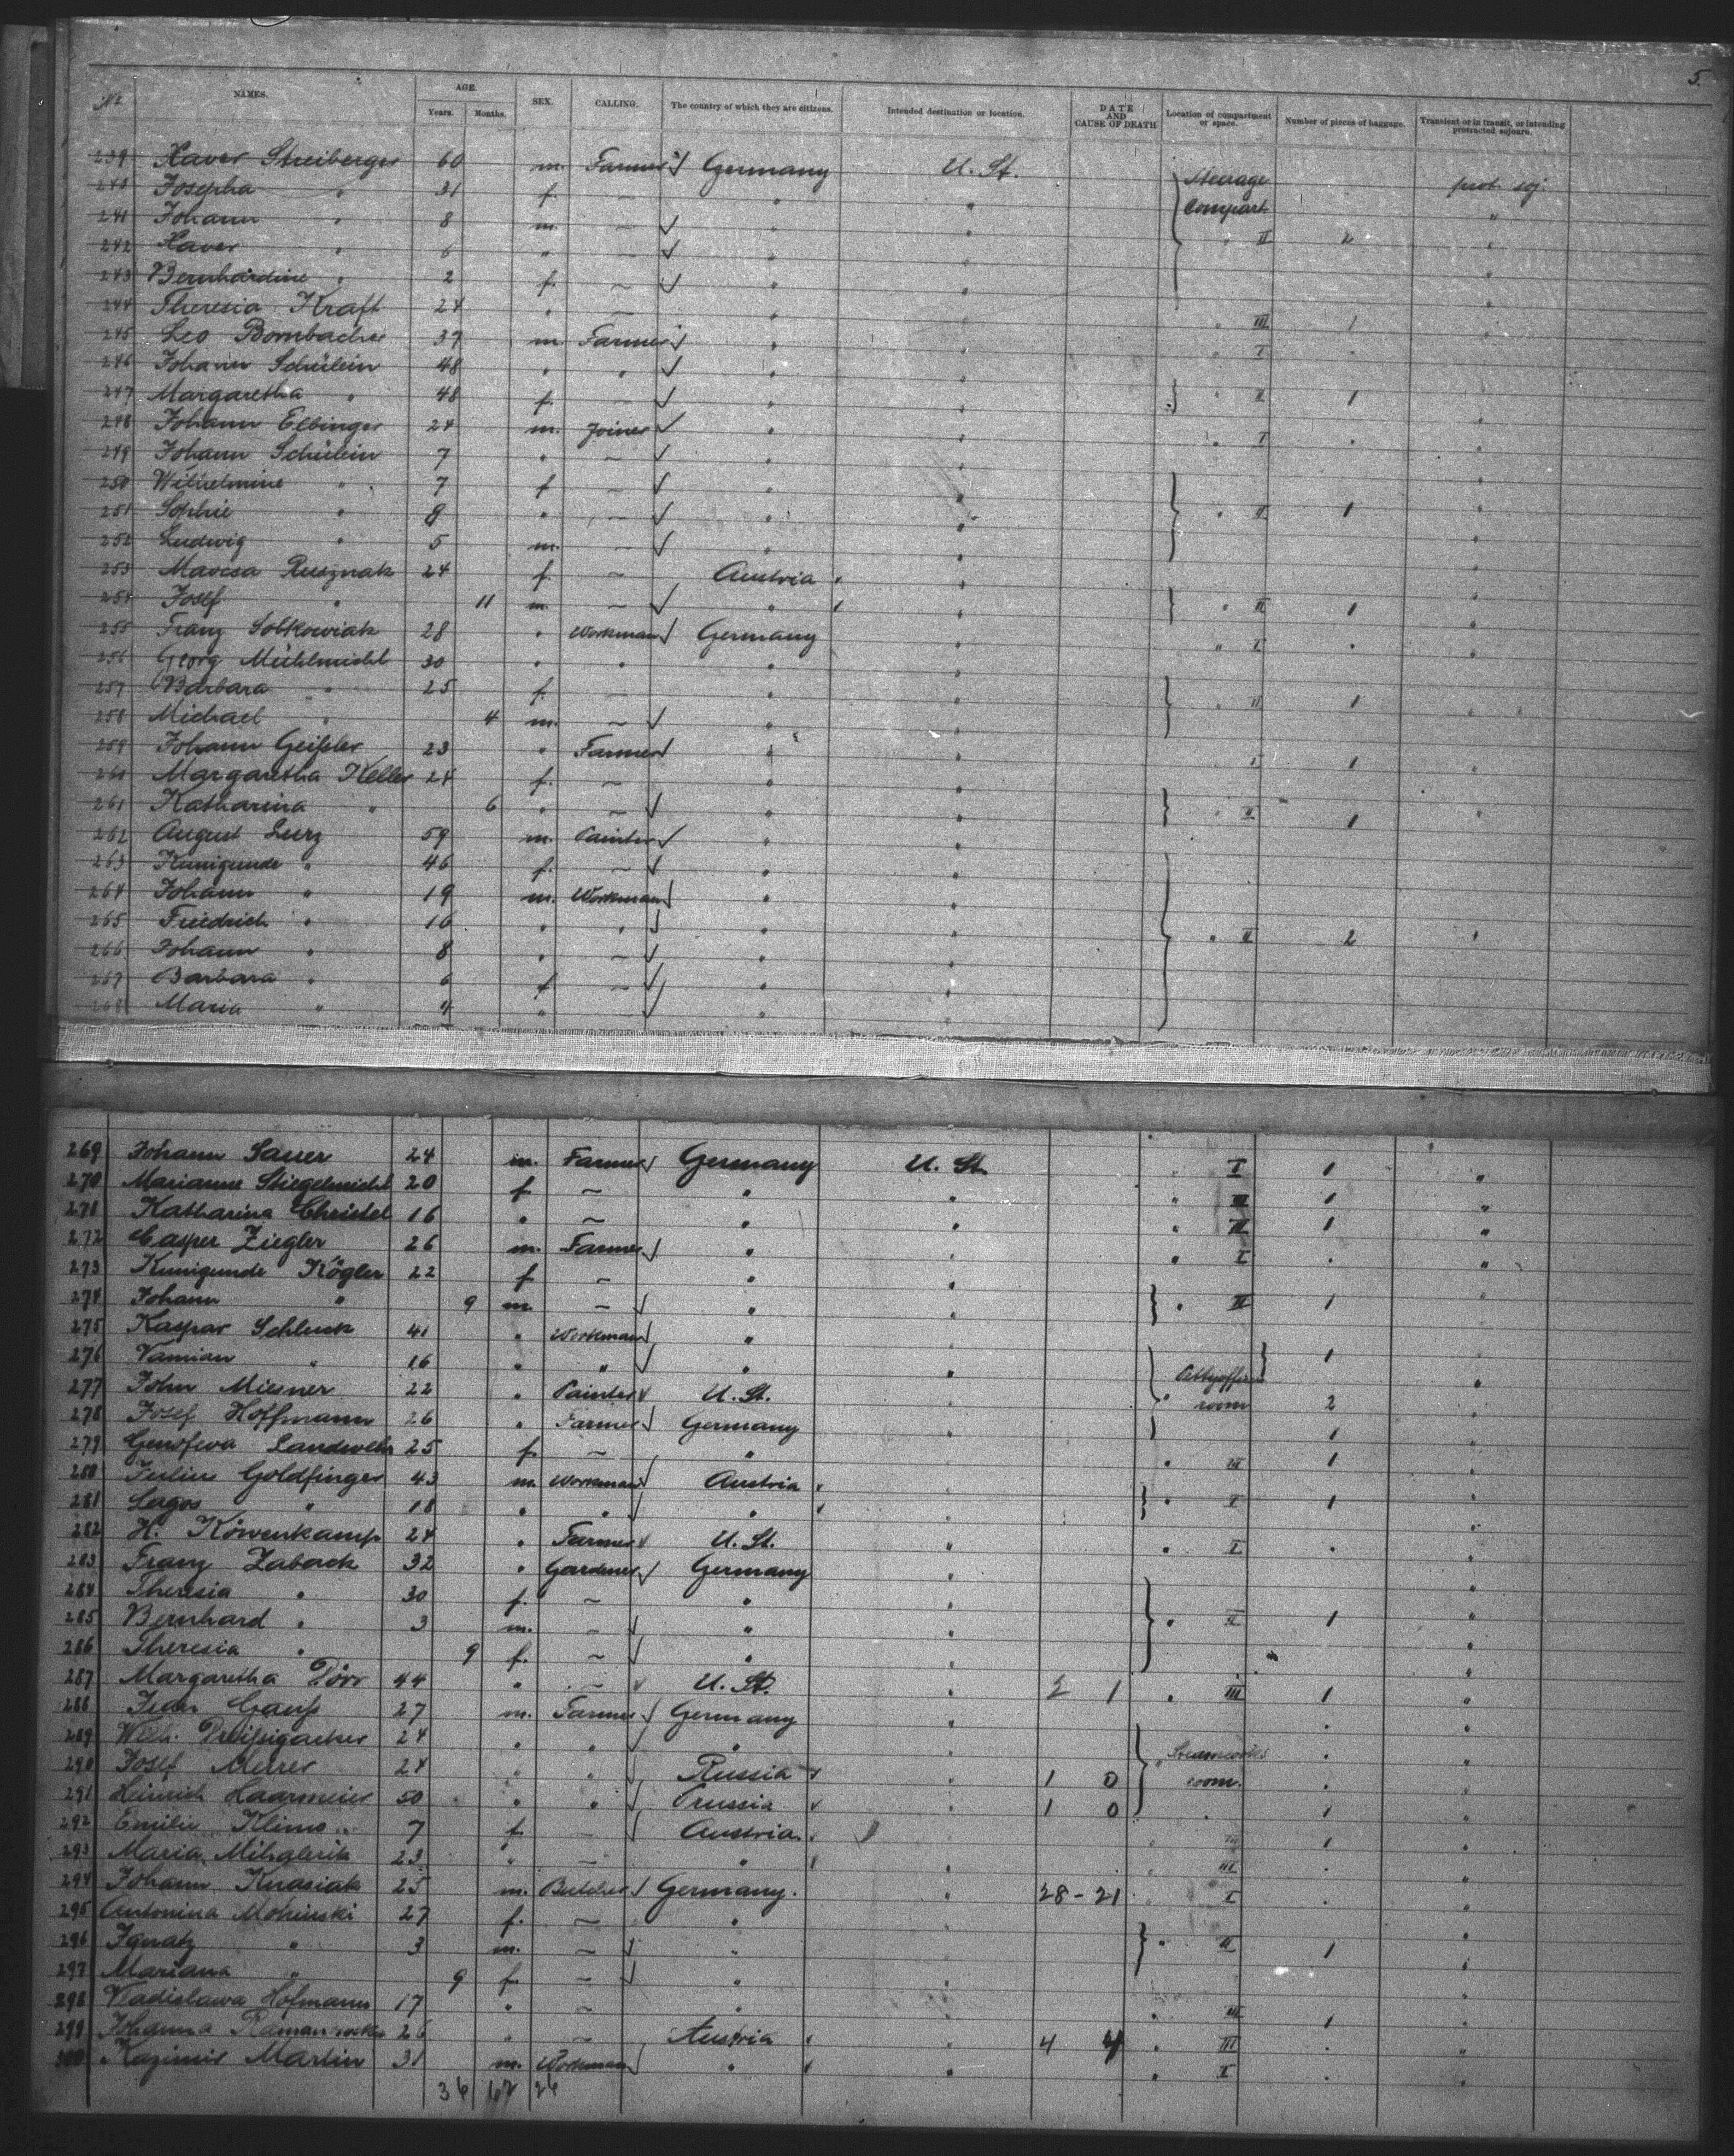 5.
No. NAMES. AGE. Years. Months. SEX. CALLING. The country of which they are citizens. Intended destination or location. DATE AND CAUSE OF DEATH Location of compartment or space. Number of pieces of baggage. Transient or in transit, or intending protracted sojourn.
239 Xaver Streiberger 60 m. Farmer Germany U. St. Steerage prot. soj.
240 Josepha " 31 f. — " " Compart "
241 Johann " 8 m. — " " " II 2 "
242 Xaver " 6 " — " " "
243 Bernhardine " 2 f. — " " "
244 Theresia Kraft 24 " — " " " III 1 "
245 Leo Bombacher 37 m. Farmer " " " I " "
246 Johann Schülein 48 " " " " "
247 Margaretha " 48 f. — " " " II 1 "
248 Johann Elbinger 24 m. Joiner " " " I " "
249 Johann Schülein 7 " — " " "
250 Wilhelmine " 7 f — " " "
251 Sophie " 9 " — " " " II 1 "
252 Ludwig " 5 m. — " " "
253 Rusznak 24 f. — Austria " "
254 Josef " 11 m — " " " II 1 "
255 Franz Sobkowiak 28 " Workman Germany " " I " "
256 Georg Mühlmichl 30 " " " "
257 Barbara " 25 f. — " " " II 1 "
258 Michael " 4 m. — " "
259 Johann Geißler 23 " Farmer " " " I 1
260 Margaretha Keller 24 f. — " "
261 Katharina " 6 " — " " " II 1 "
262 August Lurz 59 m. Painter " "
263 Kunigunde " 46 f. — " "
264 Johann " 19 m. Workman " "
265 Friedrich " 16 " " " " " II 2 "
266 Johann " 8 " — " "
267 Barbara " 6 f — " "
268 Maria " 4 " — " "
269 Johann Sauer 24 m. Farmer Germany U. St. " I 1 "
270 Marianne Stiegelmichl 20 f — " " " III 1 "
271 Katharina Christel 16 " — " " " III 1 "
272 Casper Ziegler 26 m. Farmer " " " I " "
273 Kunigunde Kögler 22 f — " "
274 Johann " 9 m. — " " " II 1 "
275 Kaspar Schluck 41 " Workman " 1
276 " 16 " " " "
277 John Miesner 22 " Painter U. St. " room 2 "
278 Josef Hoffmann 26 " Farmer Germany " 1 "
279 Genofeva Landwehr 25 f. — " " " III 1 "
280 Goldfinger 43 m. Workman Austria "
281 " 18 " " " " " I 1 "
282 H. Köwenkamp 24 " Farmer U. St. " " I " "
283 Franz Zaback 32 " Gardener Germany " "
284 Theresia " 30 f. — " "
285 Bernhard " 3 m. — " " " II 1 "
286 Theresia " 9 f. — " " "
287 Margaretha Dörr 44 " — U. St. " 1 " III 1 "
288 27 m. Farmer Germany " " "
289 Wilh. 24 " " " " room " "
290 Josef 24 " " Russia " 1 0 room. " "
291 Heinrich Haarmeier 50 " " Prussia " 1 0 1 "
292 Emilie Klima 7 f. — Austria " III 1 "
293 Maria Mihalerik 23 " — " " " III " "
294 Johann Kurasiak 25 m. Butcher Germany. " 28 - 21 " I "
295 Antonina 27 f. — " " "
296 Ignatz " 3 m. — " " " II 1 "
297 Mariana " 9 f. — " " "
298 Wladislawa Hofmann 17 " — " " " III 1 "
299 Johanna 26 " — Austria " 4 4 " III " "
300 Kazimir Martin 31 m. Workman " " " I " "
36 67 26